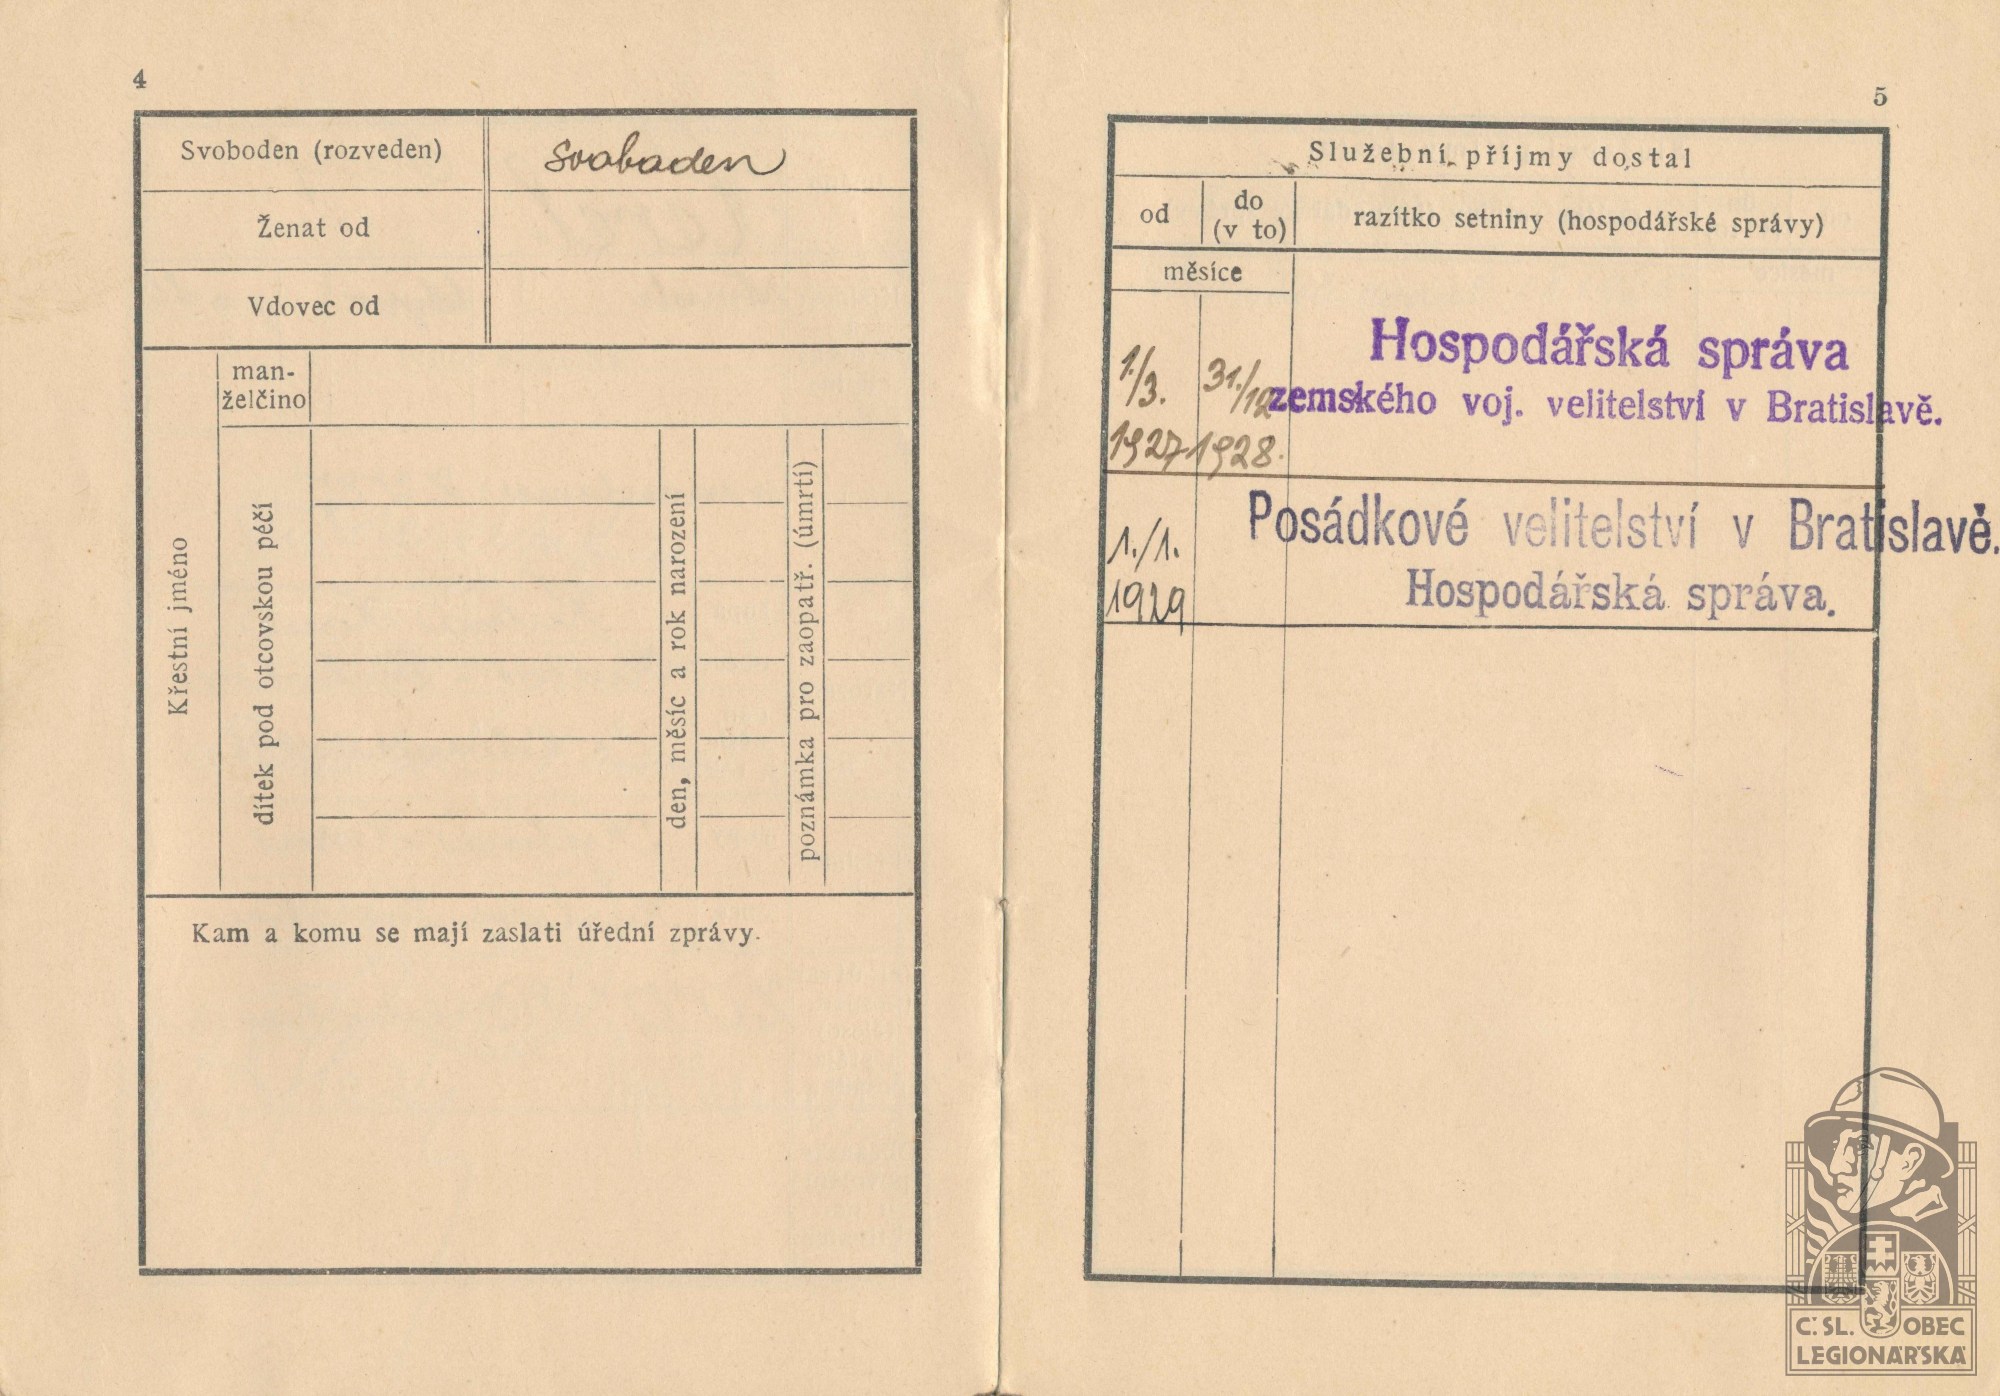 4
Svoboden (rozveden)
svoboden
Ženat od
Vdovec od
Křestní jméno
man-
želčino
dítek pod otcovskou péčí
den, měsíc a rok narození
poznámka pro zaopatř. (úmrtí)
Kam a komu se mají zaslati úřední zprávy.
5
Služební příjmy dostal
od
do
(v to)
razítko setniny (hospodářské správy)
měsíce
1./3. 31./12
1927 1928.
Hospodářská správa
zemského voj. velitelství v Bratislavě.
1./1.
1929
Posádkové velitelství v Bratislavě.
Hospodářská správa.
Č. SL. OBEC
LEGIONÁŘSKÁ